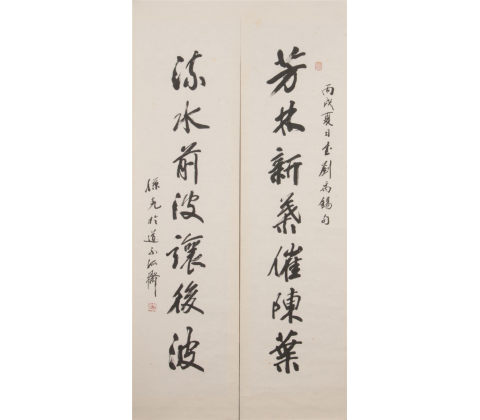 丙戌夏日書劉禹錫句
芳林新葉催陳葉
流水前波讓後波
孫元於道不江齋